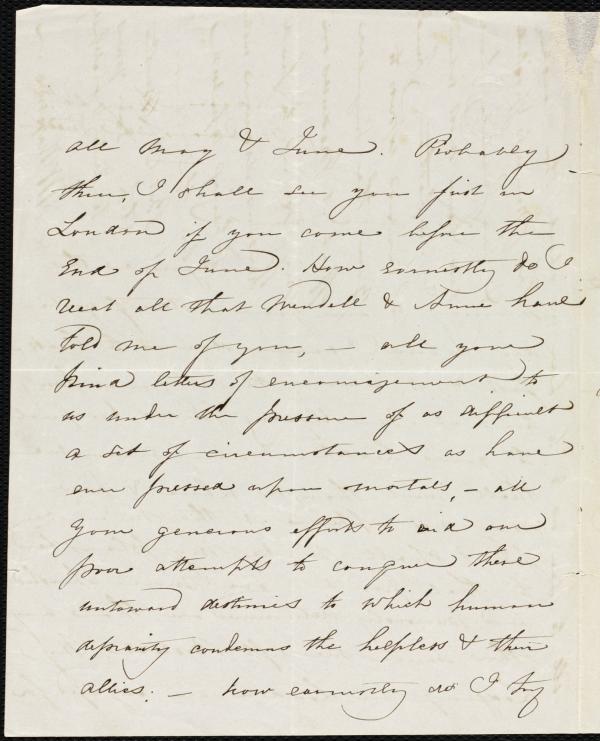 all May & June. Probably
then, I shall see you first in
London if you come before the
End of June. How earnestly do I
all that Wendell & Anne have
told me of you, – all your
kind letters of encouragement to
us under the pressure of as difficult
a set of circumstances as have
ever pressed upon mortals, – all
your generous efforts to aid our
poor attempts to conquer these
untoward destinies to which human
depravity condemns the helpless & their
allies. – how earnestly do I